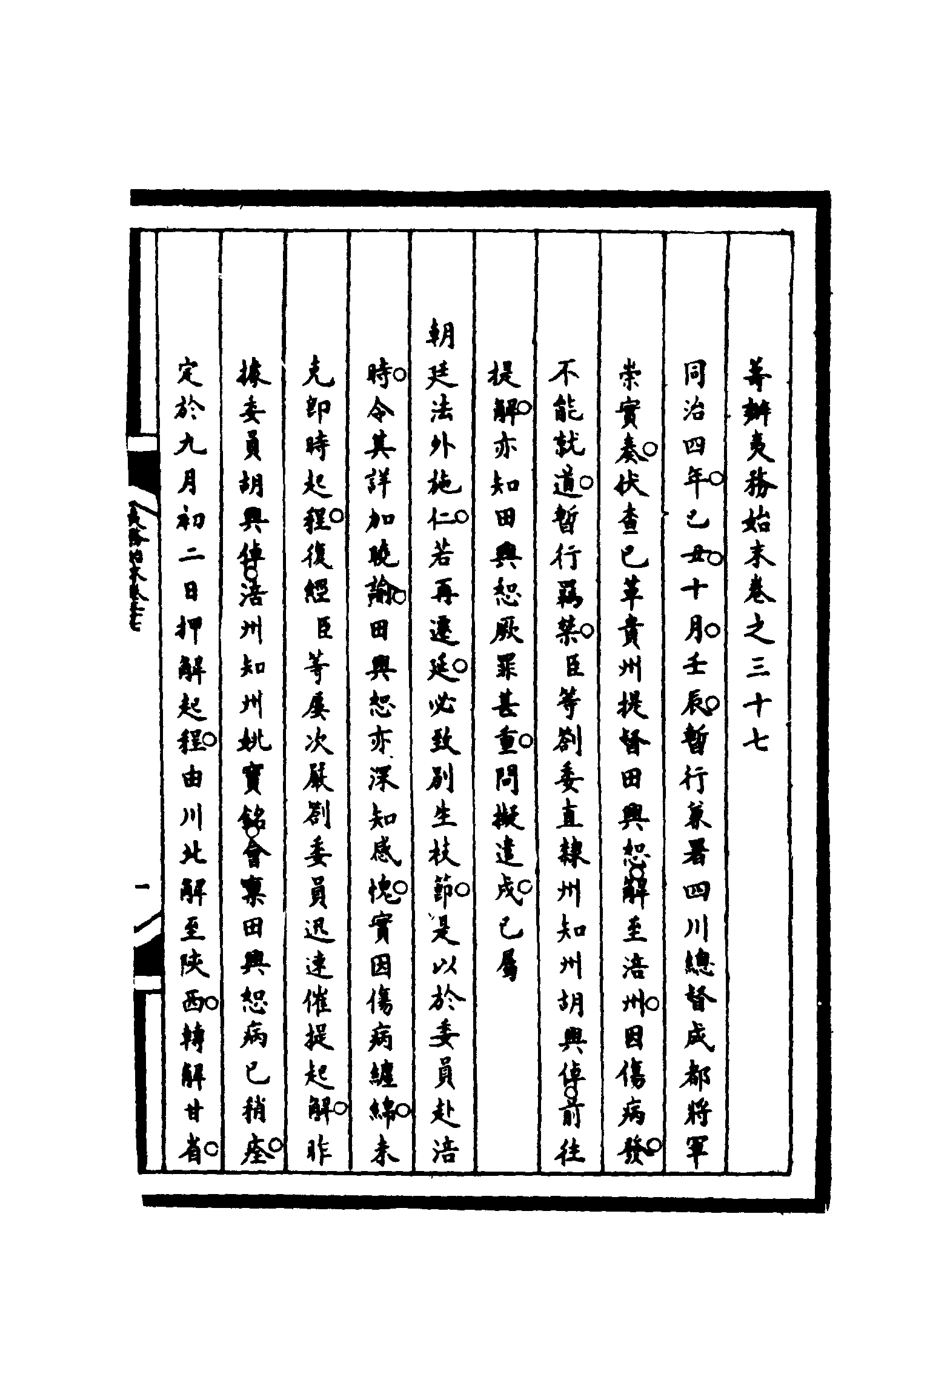 籌辦夷務始末卷之三十七
同治四年。乙丑。十月。壬辰。暫行兼署四川總督成都將軍
崇實奏。伏查已革貴州提督田興恕。解至涪州。因傷病發。
不能就道。暫行羈禁。臣等劄委直隸州知州胡興倬。前往
提解。亦知田興恕厥罪甚重。問擬遣戍。已屬
朝廷法外施仁。若再遷延。必致別生枝節。是以於委員赴涪
時。令其詳加曉諭。田興恕亦深知感愧。實因傷病纏綿。未
克卽時起程。復經臣等屢次嚴劄委員迅速催提起解。昨
據委員胡興倬。涪州知州姚寶銘。會稟田興恕病已稍痊。
定於九月初二日押解起程。由川北解至陝西。轉解甘省。
夷務始末卷三十七
一